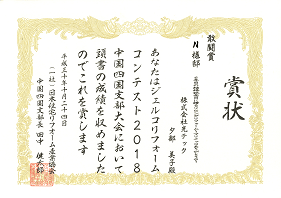 賞状
散闘賞
N様邸
株式会社光テック
夕部 美子殿
あなたはジェルコリフォーム
コンテスト2018
中国四国支部大会において
頭書の成績を収めました
のでこれを賞します
平成三十年十月二十四日
(一社)日本住宅リフォーム産業協会
中国四国支部長 田中